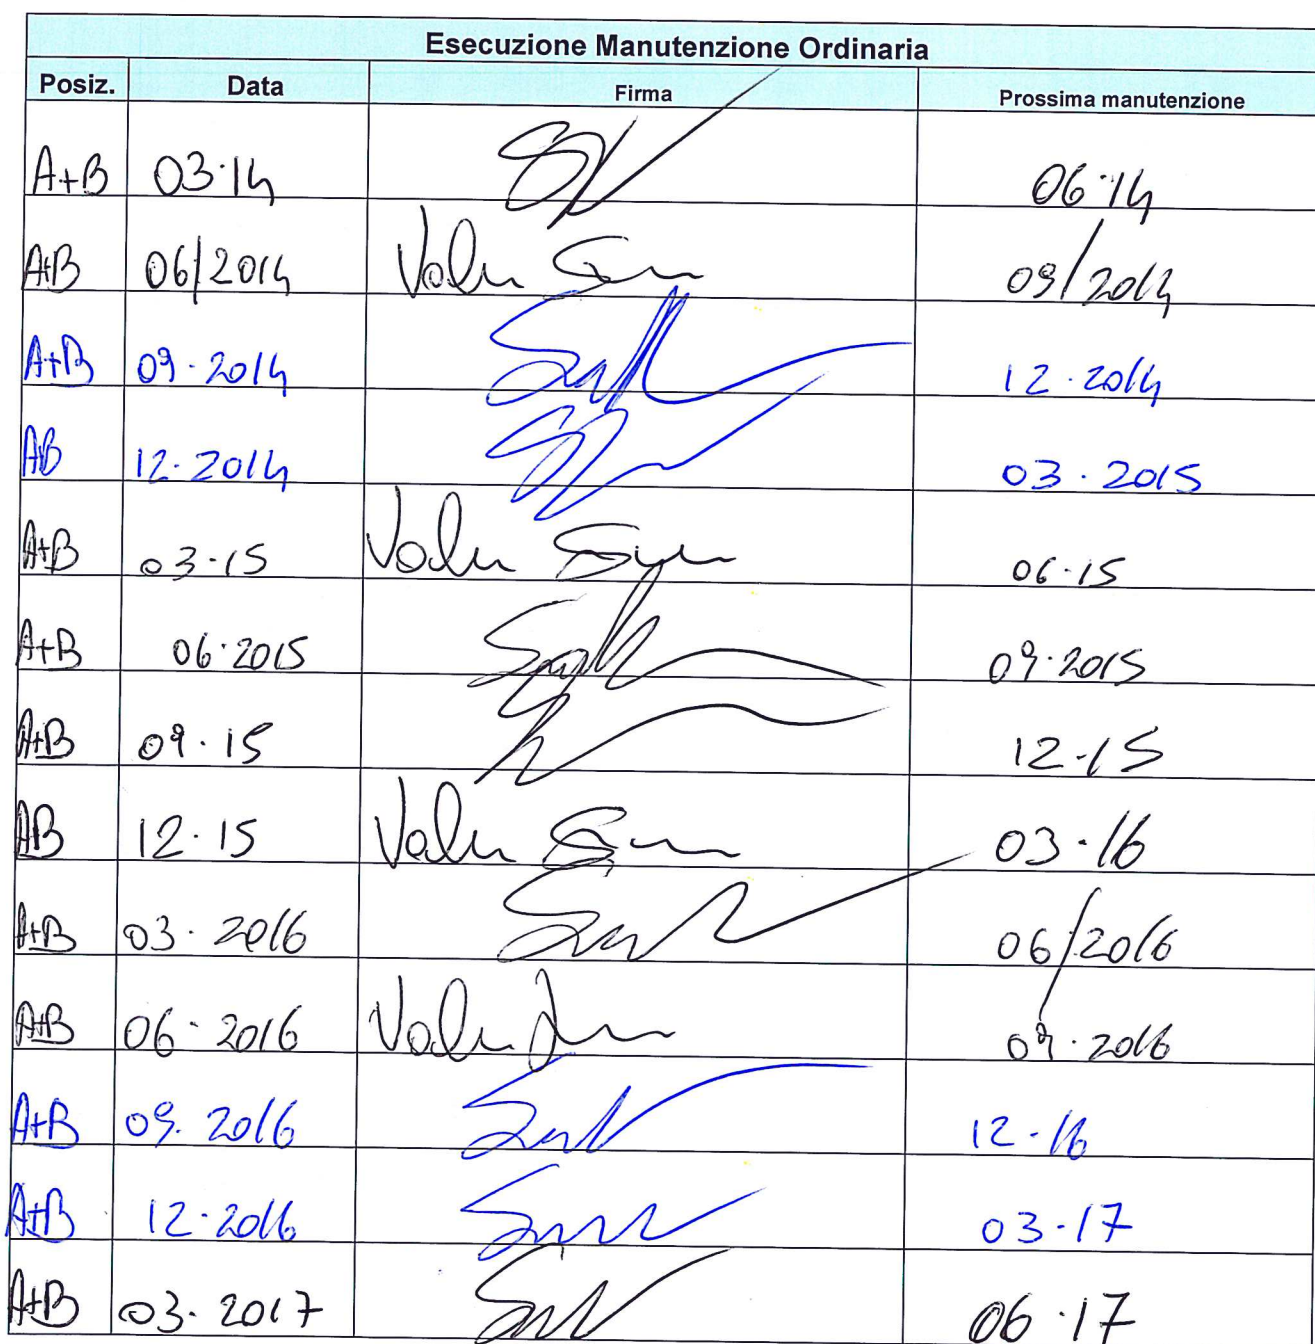 Esecuzione Manutenzione Ordinaria
Posiz. Data Firma Prossima manutenzione
A+B 03·14 06·14
A+B 06/2014 09/2014
A+B 09·2014 12·2014
AB 12·2014 03·2015
A+B 03·15 06·15
A+B 06·2015 09·2015
A+B 09·15 12·15
AB 12·15 03·16
A+B 03·2016 06/2016
A+B 06·2016 09·2016
A+B 09·2016 12·16
A+B 12·2016 03·17
A+B 03·2017 06·17